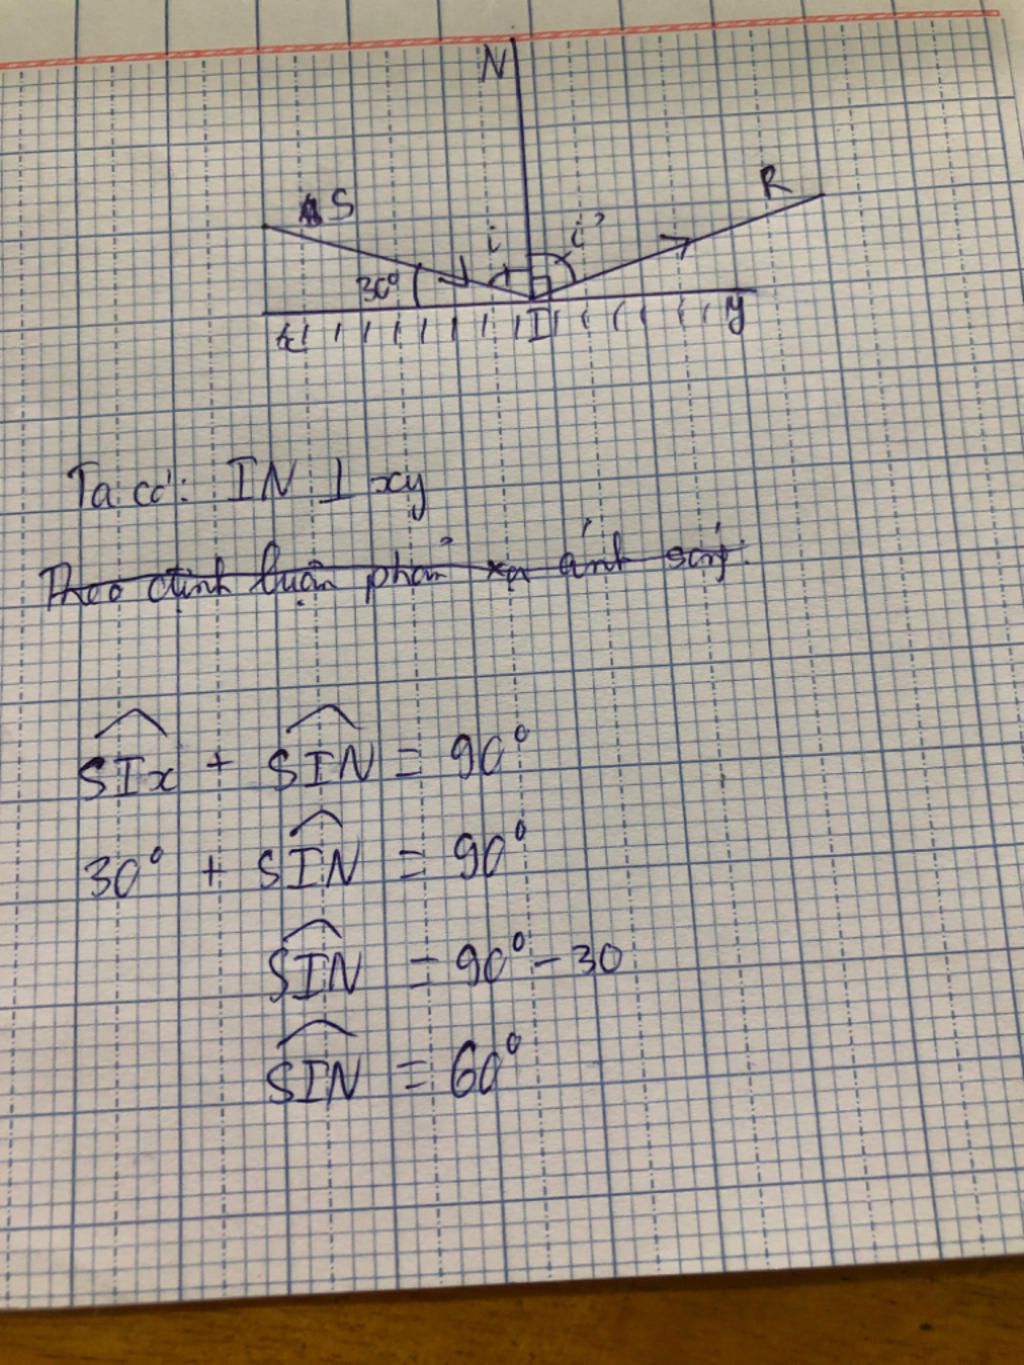 N
S
R
i
i'
30°
x
I
y
Ta có: IN ⊥ xy
Theo định luận phản xạ ánh sáng:
SIx + SIN = 90°
30° + SIN = 90°
SIN = 90° - 30
SIN = 60°